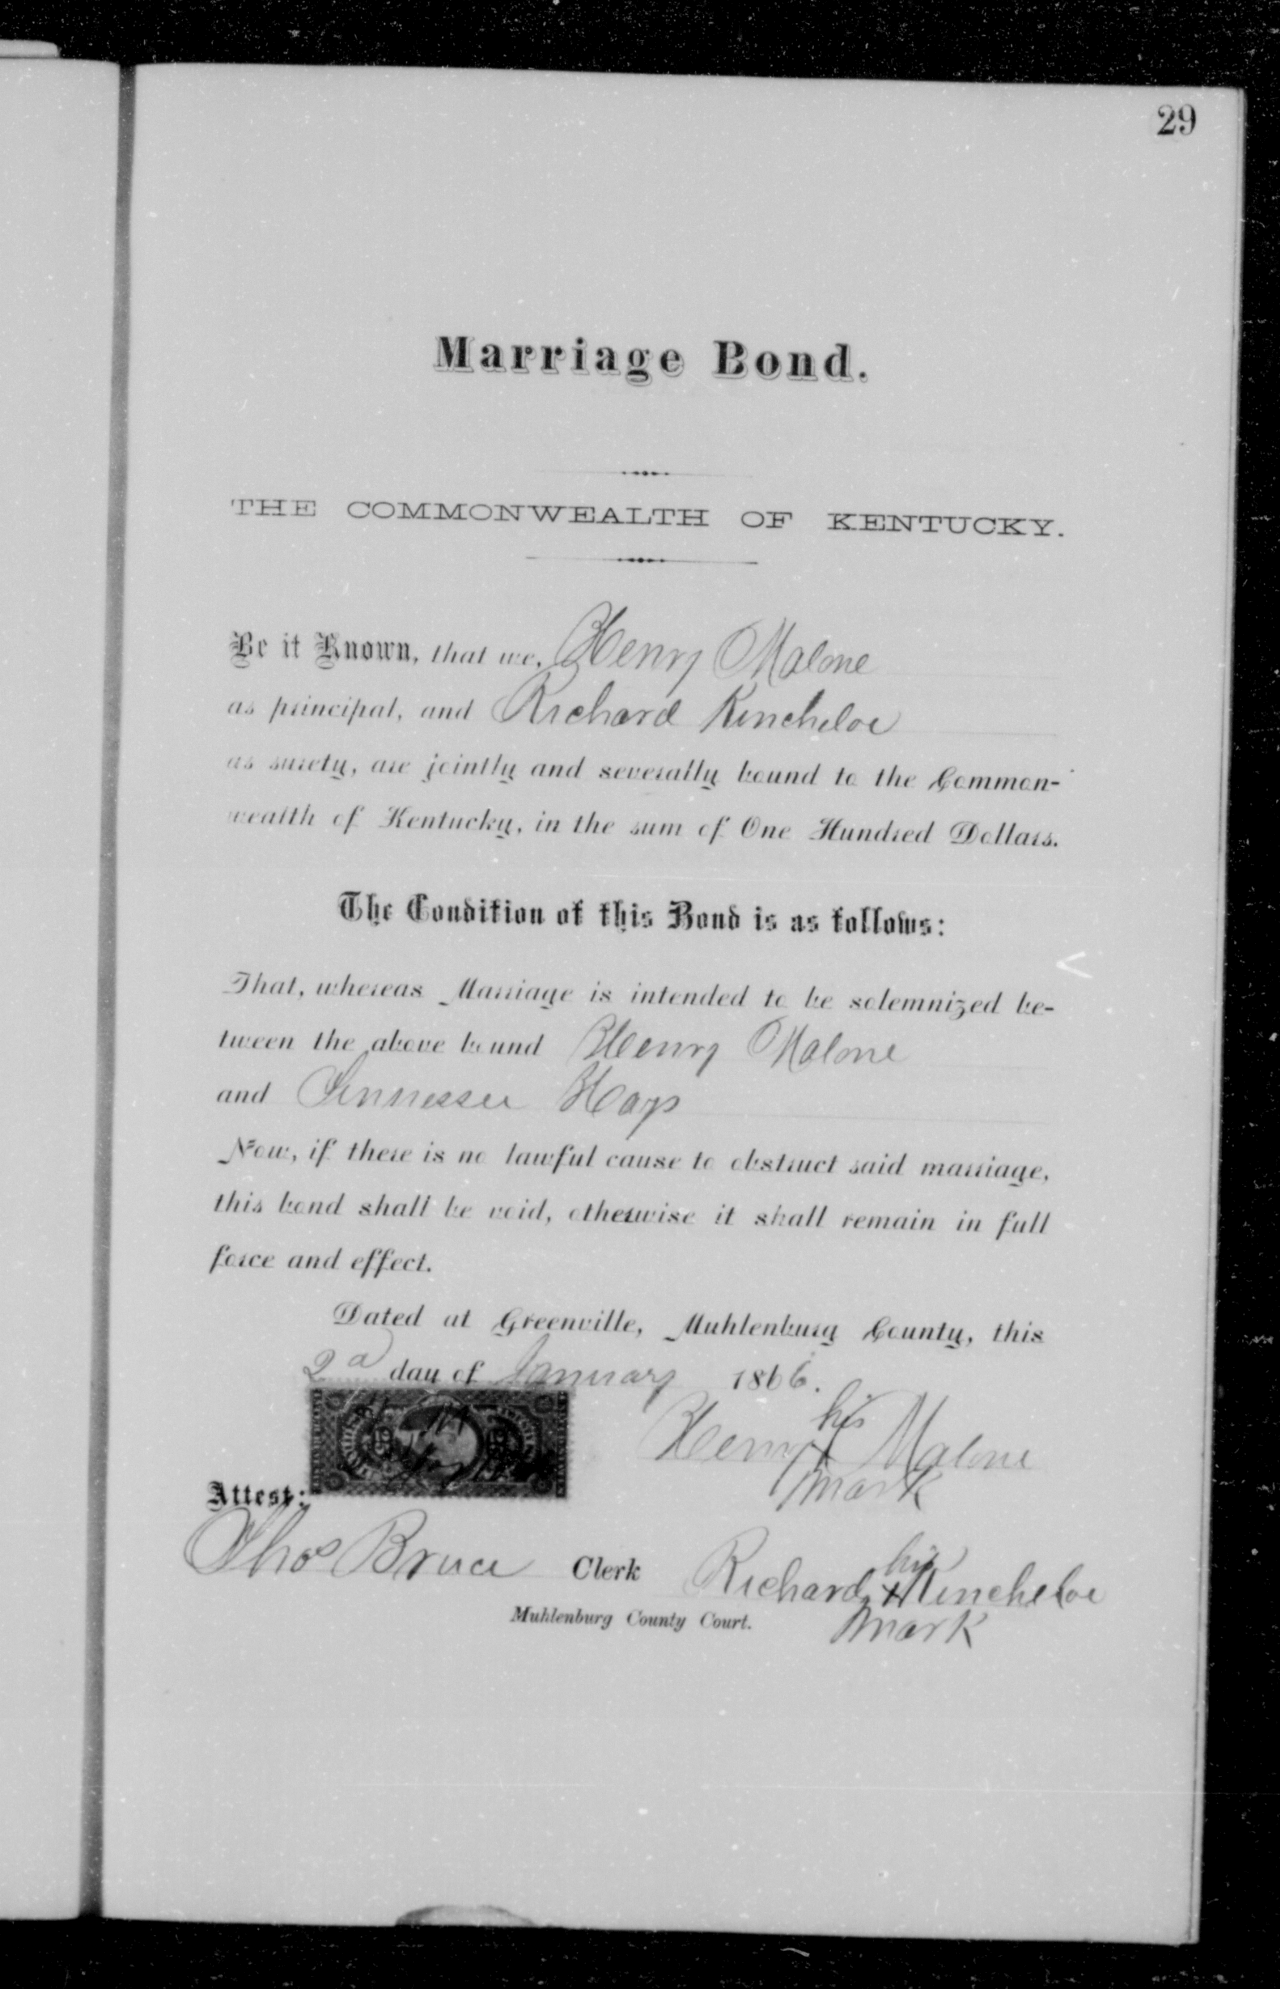 29
Marriage Bond.
THE COMMONWEALTH OF KENTUCKY.
Be it Known, that we, Henry Malone
as principal, and Richard Kincheloe
as surety, are jointly and severally bound to the Common-
wealth of Kentucky, in the sum of One Hundred Dollars.
The Condition of this Bond is as follows:
That, whereas Marriage is intended to be solemnized be-
tween the above bound Henry Malone
and Tennessee Hays
Now, if there is no lawful cause to obstruct said marriage,
this bond shall be void, otherwise it shall remain in full
force and effect.
Dated at Greenville, Muhlenburg County, this
2d day of January 1866.
his
Henry X Malone
mark
Attest:
Thos Bruce Clerk
his
Richard X Kincheloe
Muhlenburg County Court.
mark